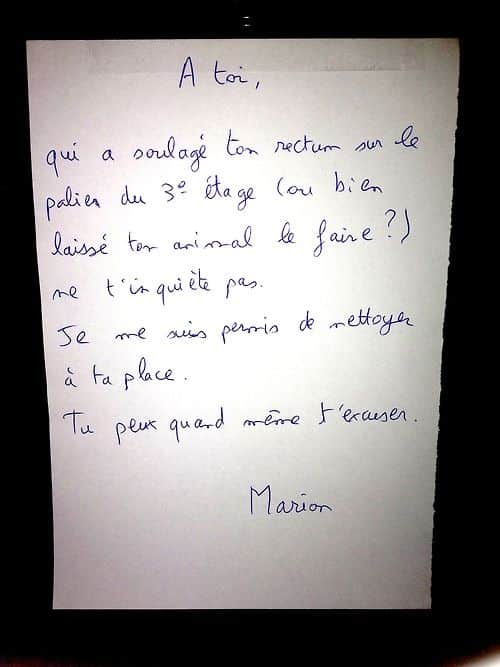 A toi,
qui a soulagé ton rectum sur le
palier du 3e étage (ou bien
laissé ton animal le faire?)
ne t'inquiète pas.
Je me suis permis de nettoyer
à ta place.
Tu peux quand même t'excuser.
Marion